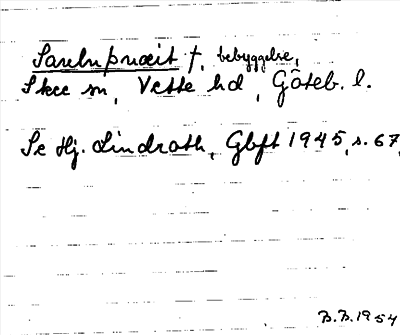 Sarelnpruæit †, bebyggelse,
Skee sn, Vette hd, Göteb. l.
Se Hj. Lindroth, Gbft 1945, s. 67,
B.B. 1954